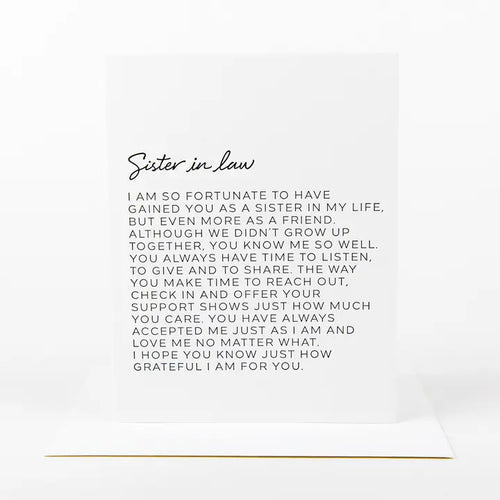 Sister in law
I AM SO FORTUNATE TO HAVE
GAINED YOU AS A SISTER IN MY LIFE,
BUT EVEN MORE AS A FRIEND.
ALTHOUGH WE DIDN'T GROW UP
TOGETHER, YOU KNOW ME SO WELL.
YOU ALWAYS HAVE TIME TO LISTEN,
TO GIVE AND TO SHARE. THE WAY
YOU MAKE TIME TO REACH OUT,
CHECK IN AND OFFER YOUR
SUPPORT SHOWS JUST HOW MUCH
YOU CARE. YOU HAVE ALWAYS
ACCEPTED ME JUST AS I AM AND
LOVE ME NO MATTER WHAT.
I HOPE YOU KNOW JUST HOW
GRATEFUL I AM FOR YOU.